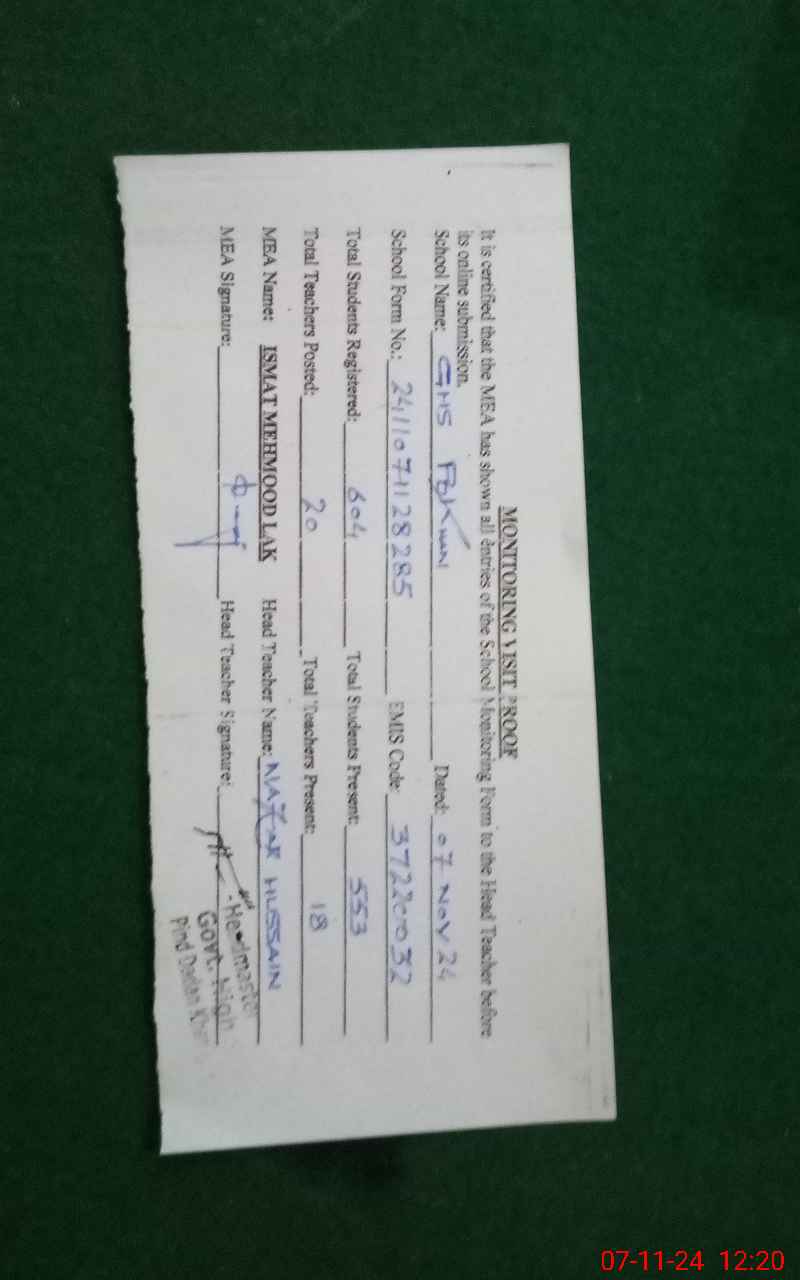 MONITORING VISIT PROOF
It is certified that the MEA has shown all entries of the School Monitoring Form to the Head Teacher before
its online submission.
School Name: GHS Dated: 07 Nov 24
School Form No.: 2411071128285 EMIS Code:
Total Students Registered: 604 Total Students Present: 553
Total Teachers Posted: 20 Total Teachers Present: 18
MEA Name: ISMAT MEHMOOD LAK Head Teacher Name: HUSSAIN
MEA Signature: Head Teacher Signature:
Headmaster
Govt. High
Pind Dadan Khan
07-11-24 12:20